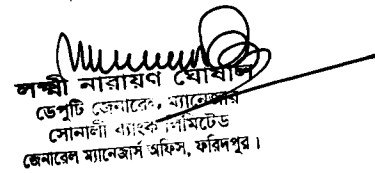 লক্ষ্মী নারায়ণ ঘোষাল
ডেপুটি জেনারেল ম্যানেজার
সোনালী ব্যাংক লিমিটেড
জেনারেল ম্যানেজার্স অফিস, ফরিদপুর।